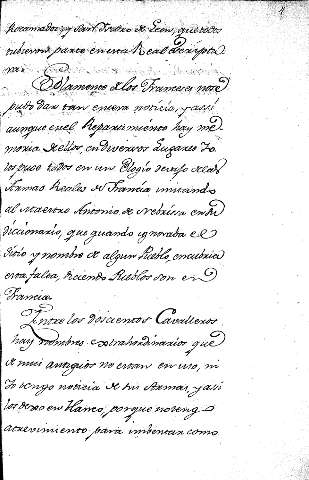 Rocamador, y San Isidro de Leon, que todos
tubieron parte en esta Real Escripta
ra.
Solamente de los Franceses no se
pudo dar tan entera noticia, y assi
aunque en el Repartimiento hay me
moria dellos, en diversos lugares Yo
los puse todos en un Elogio devajo de las
Armas Reales de Francia imitando
al Maestro Antonio de Nebrissa en su
diccionario, que quando ignoraba el
sitio y nombre de algun Pueblo, encubria
esta falta, diciendo Pueblos son en
Francia.
Entre los doscientos Cavalleros
hay nombres extrahordinarios que
de mui antiguos no estan en uso, ni
Yo tengo noticia de sus Armas, y assi
los dexo en blanco, porque no tengo
atrevimiento para imbentar como